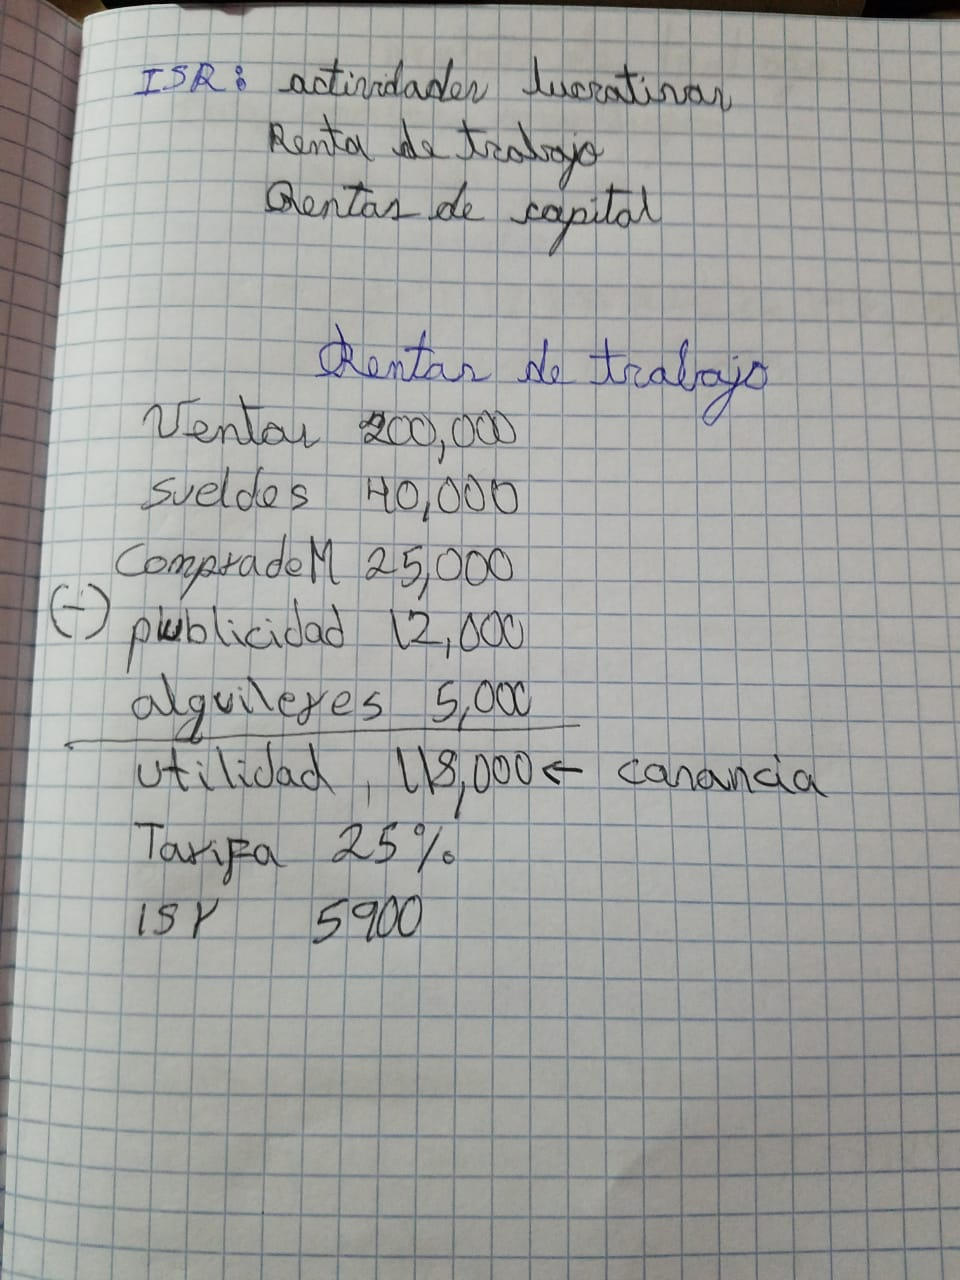 ISR: actividades lucrativas
Renta de trabajo
Rentas de capital
Rentas de trabajo
Ventas 200,000
sueldos 40,000
Comprade M 25,000
(-) publicidad 12,000
alquileres 5,000
utilidad , 118,000 ← canancia
Tarifa 25%
ISr 5900